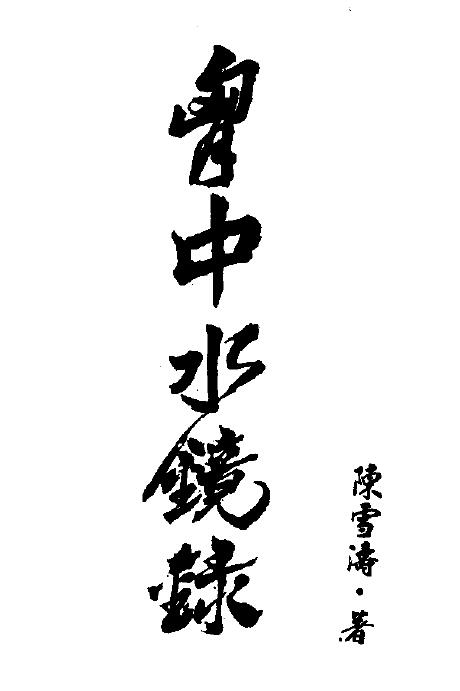 胷中水鏡錄
陳雪濤・著